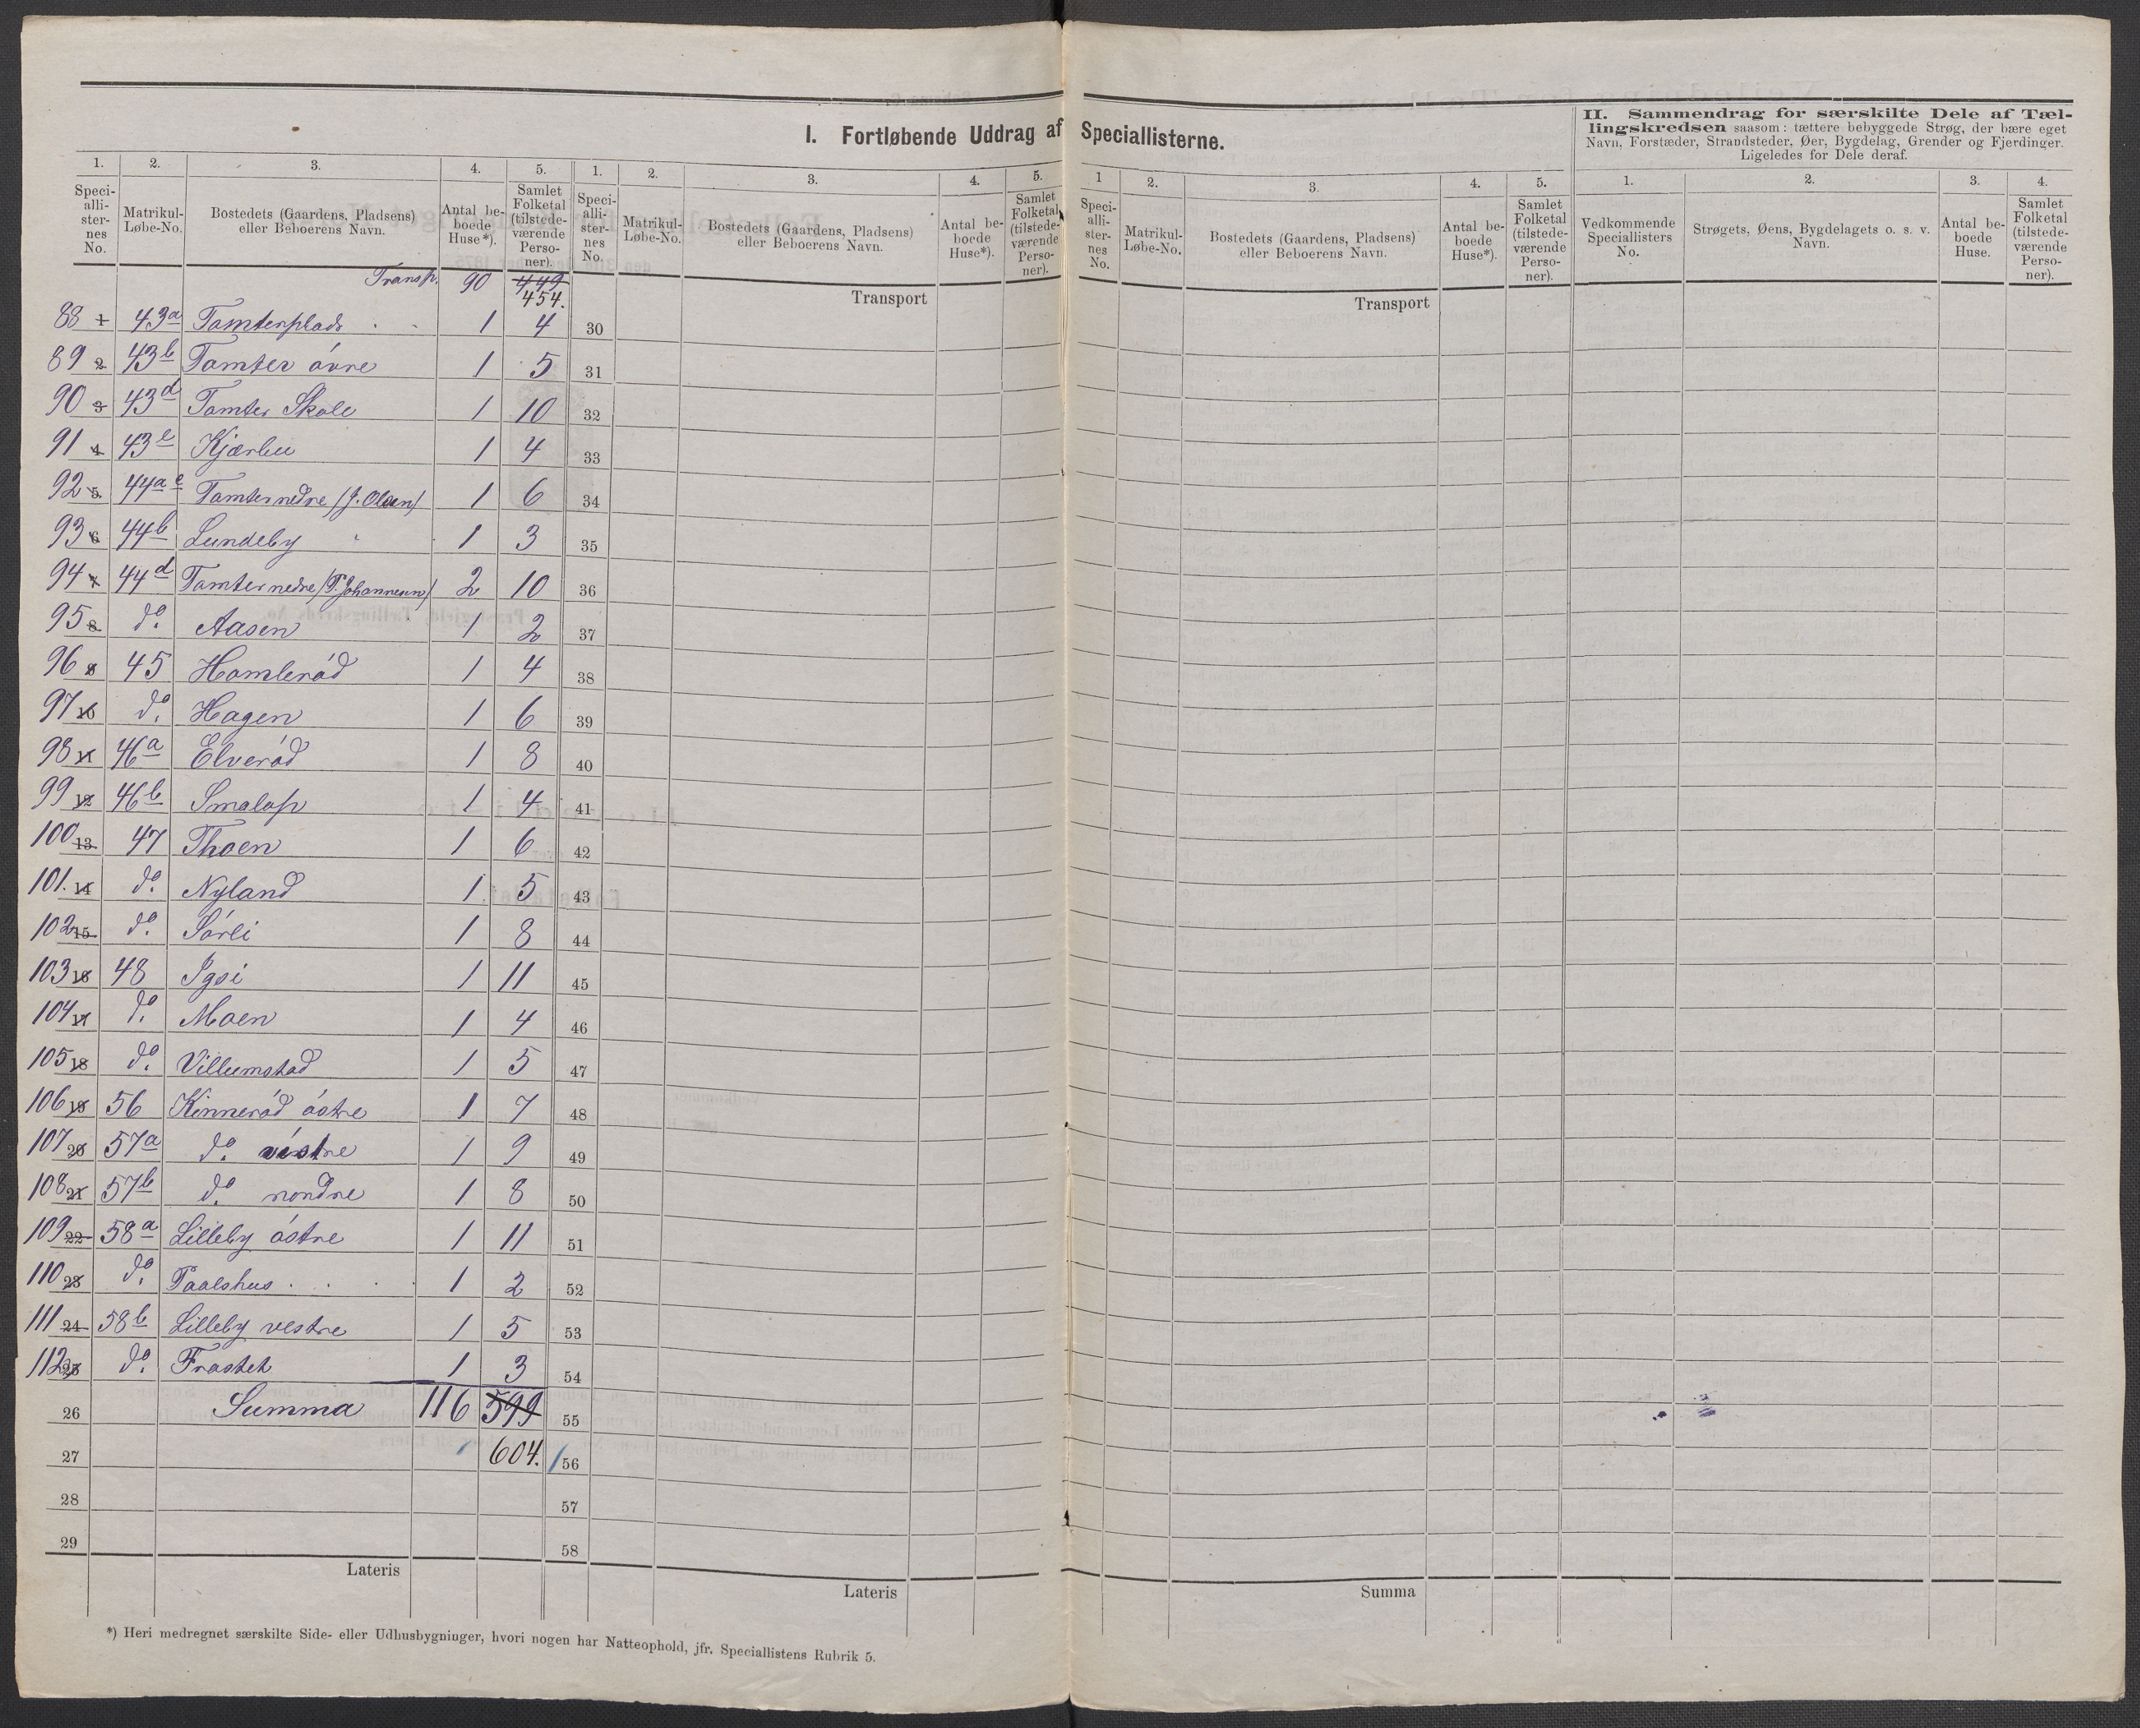 I. Fortløbende Uddrag af Speciallisterne.
II. Sammendrag for særskilte Dele af Tæl-
lingskredsen saasom: tættere bebyggede Strøg, der bære eget
Navn, Forstæder, Strandsteder, Øer, Bygdelag, Grender og Fjerdinger.
Ligeledes for Dele deraf.
1. 2. 3. 4. 5. 1. 2. 3. 4. 5. 1 2. 3. 4. 5. 1. 2. 3. 4.
Speci-alli-ster-nes No. Matrikul-Løbe-No. Bostedets (Gaardens, Pladsens) eller Beboerens Navn. Antal be-boede Huse*). Samlet Folketal (tilstede-værende Perso-ner).
Speci-alli-ster-nes No. Matrikul-Løbe-No. Bostedets (Gaardens, Pladsens) eller Beboerens Navn. Antal be-boede Huse*). Samlet Folketal (tilstede-værende Perso-ner).
Speci-alli-ster-nes No. Matrikul-Løbe-No. Bostedets (Gaardens, Pladsens) eller Beboerens Navn. Antal be-boede Huse*). Samlet Folketal (tilstede-værende Perso-ner).
Vedkommende Speciallisters No. Strøgets, Øens, Bygdelagets o. s. v. Navn. Antal be-boede Huse. Samlet Folketal (tilstede-værende Perso-ner).
Transp. 90 449
454. Transport Transport
88 1 43a Tamterplads 1 4 30
89 2 43b Tamter övre 1 5 31
90 3 43d Tamter Skole 1 10 32
91 4 43e Kjærbu 1 4 33
92 5. 44a e Tamter nedre (J. Olsen) 1 6 34
93 6 44b Lundeby 1 3 35
94 7 44d Tamter nedre (T. Johannesen) 2 10 36
95 8 do. Aasen 1 2 37
96 9 45 Hamleröd 1 4 38
97 10 do. Hagen 1 6 39
98 11 46a Elveröd 1 8 40
99 12 46b Smalop 1 4 41
100 13 47 Thoen 1 6 42
101. 14 do. Nyland 1 5 43
102 15 do. Sörli 1 8 44
103 16 48 Igsi 1 11 45
104 17 do. Moen 1 4 46
105 18 do. Villumstad 1 5 47
106 19 56 Kinneröd östre 1 7 48
107 20 57a do. vestre 1 9 49
108 21 57b do. nordre 1 8 50
109 22 58a Lilleby östre 1 11 51
110 23 do. Paalshus 1 2 52
111 24 58b Lilleby vestre 1 5 53
112 25 do. Frastet 1 3 54
26 Summa 116 599 55
27 604. 56
28 57
29 58
Lateris Lateris Summa
*) Heri medregnet særskilte Side- eller Udhusbygninger, hvori nogen har Natteophold, jfr. Speciallistens Rubrik 5.